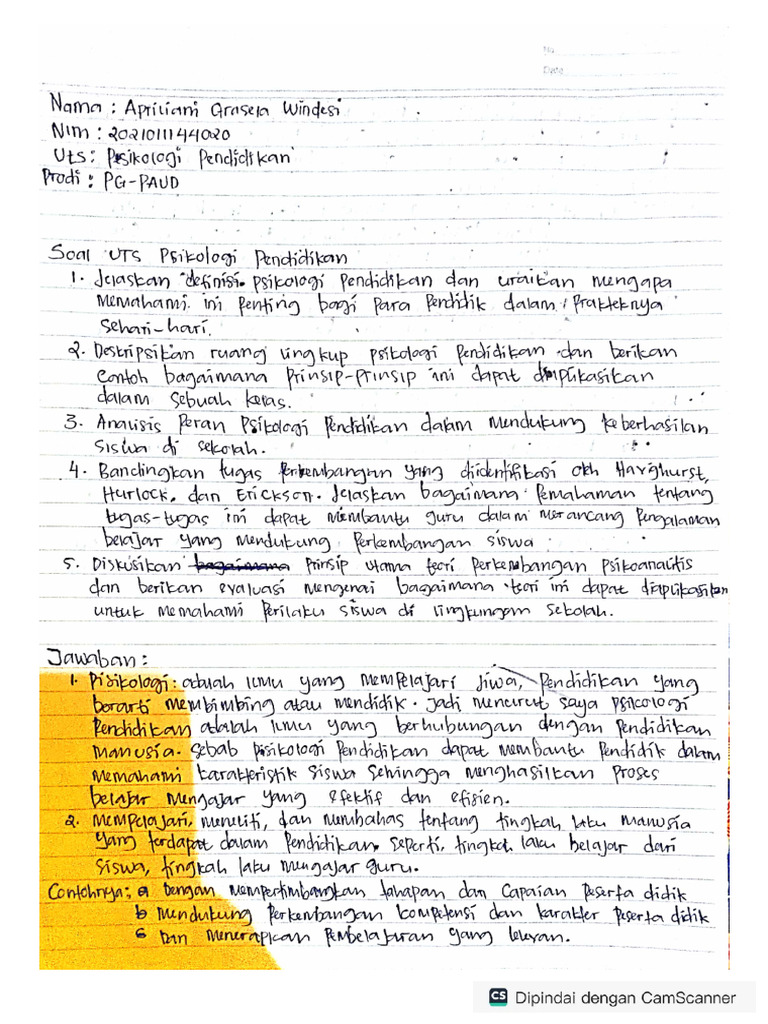 No
Date
Nama : Apriliani Grasela Windesi
Nim : 2021011144020
Uts : Psikologi Pendidikan
Prodi : PG-PAUD
Soal UTS Psikologi Pendidikan
1. Jelaskan definisi psikologi pendidikan dan uraikan mengapa
memahami ini penting bagi para pendidik dalam prakteknya
sehari-hari.
2. Deskripsikan ruang lingkup psikologi pendidikan dan berikan
contoh bagaimana prinsip-prinsip ini dapat diaplikasikan
dalam sebuah kelas.
3. Analisis peran psikologi pendidikan dalam mendukung keberhasilan
siswa di sekolah.
4. Bandingkan tugas perkembangan yang diidentifikasi oleh Havighurst,
Hurlock, dan Erickson. Jelaskan bagaimana pemahaman tentang
tugas-tugas ini dapat membantu guru dalam merancang pengalaman
belajar yang mendukung perkembangan siswa
5. Diskusikan bagaimana prinsip utama teori perkembangan psikoanalitis
dan berikan evaluasi mengenai bagaimana teori ini dapat diaplikasikan
untuk memahami perilaku siswa di lingkungan sekolah.
Jawaban :
1. Psikologi : adalah ilmu yang mempelajari jiwa, pendidikan yang
berarti membimbing atau mendidik. Jadi menurut saya psicologi
pendidikan adalah ilmu yang berhubungan dengan pendidikan
manusia. Sebab psikologi pendidikan dapat membantu pendidik dalam
memahami karakteristik siswa sehingga menghasilkan proses
belajar mengajar yang efektif dan efisien.
2. mempelajari, meneliti, dan membahas tentang tingkah laku manusia
yang terdapat dalam pendidikan, seperti, tingkah laku belajar dari
siswa, tingkah laku mengajar guru.
Contohnya : a Dengan mempertimbangkan tahapan dan capaian peserta didik
b mendukung perkembangan kompetensi dan karakter peserta didik
c Dan menerapkan pembelajaran yang relevan.
CS Dipindai dengan CamScanner